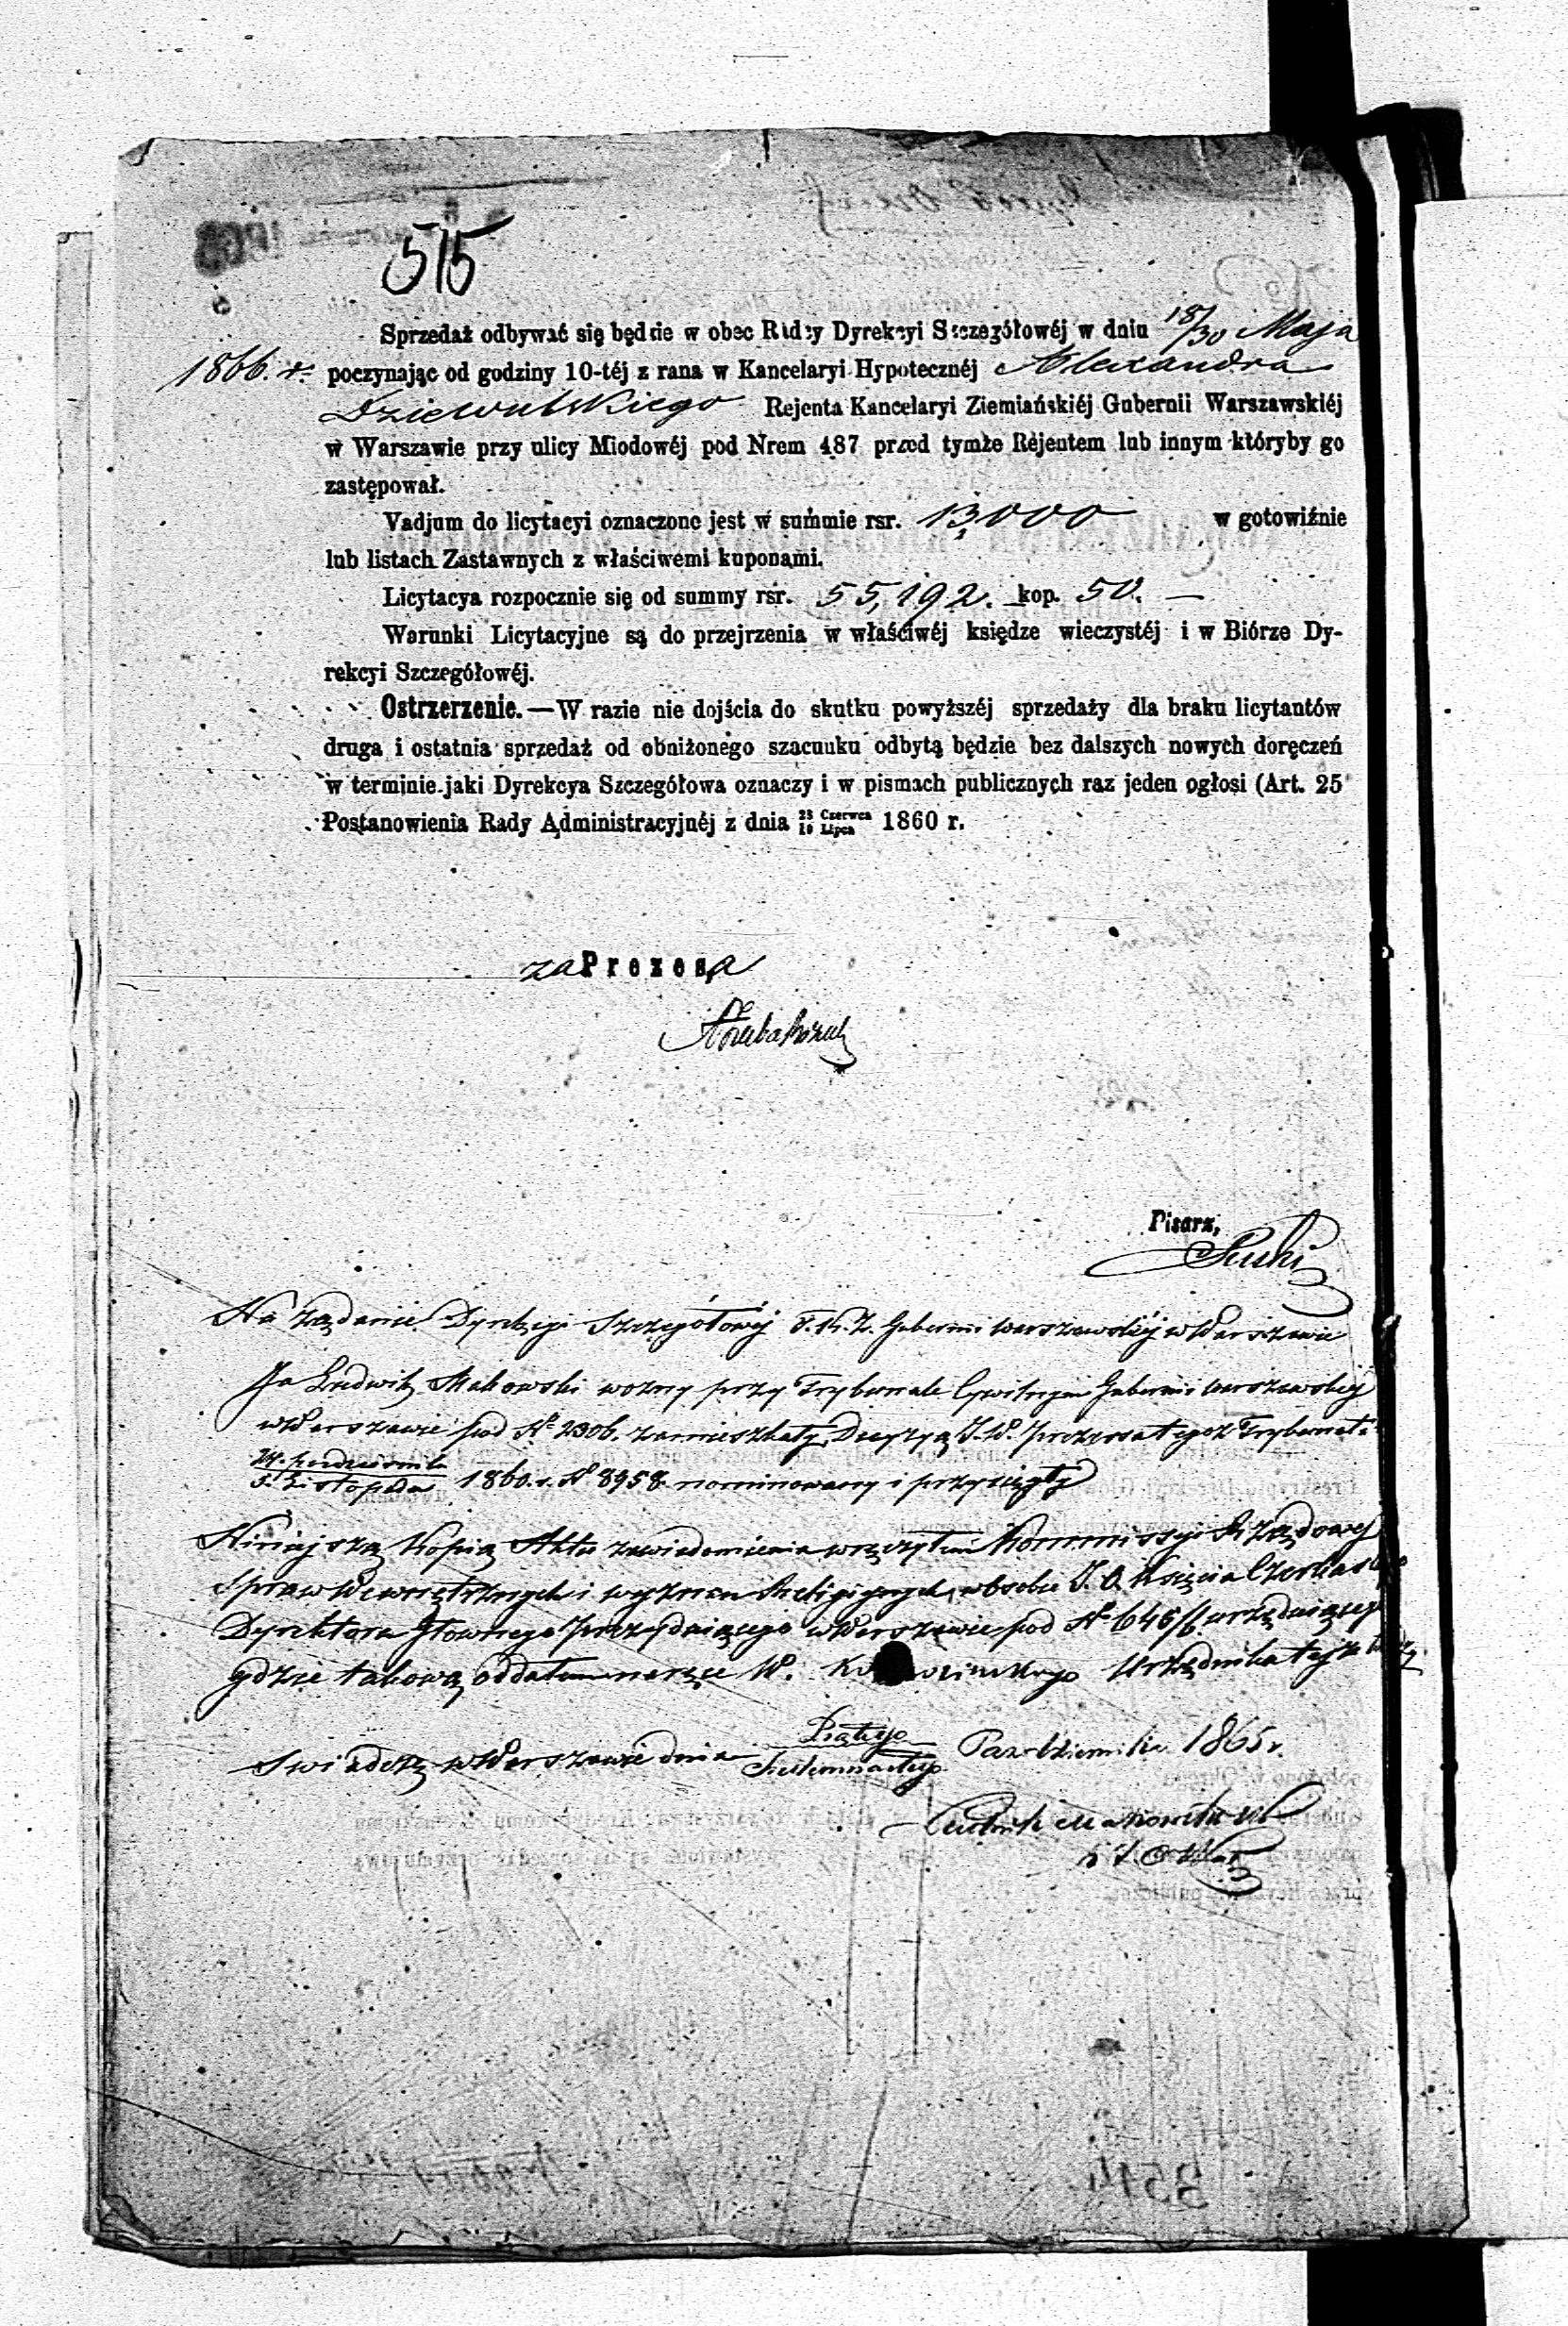 515
Sprzedaż odbywać się będzie w obec Radcy Dyrekcyi Szczegółowéj w dniu 18/30 Maja
1866. r. poczynając od godziny 10-téj z rana w Kancelaryi Hypotecznéj Alexandra
Dziewulskiego Rejenta Kancelaryi Ziemiańskiéj Gubernii Warszawskiéj
w Warszawie przy ulicy Miodowéj pod Nrem 487 przed tymże Rejentem lub innym któryby go
zastępował.
Vadjum do licytacyi oznaczone jest w summie rsr. 13,000 w gotowiźnie
lub listach Zastawnych z właściwemi kuponami.
Licytacya rozpocznie się od summy rsr. 55,192. kop. 50. —
Warunki Licytacyjne są do przejrzenia w właściwéj księdze wieczystéj i w Biórze Dy-
rekcyi Szczegółowéj.
Ostrzerzenie.—W razie nie dojścia do skutku powyższéj sprzedaży dla braku licytantów
druga i ostatnia sprzedaż od obniżonego szacunku odbytą będzie bez dalszych nowych doręczeń
w terminie jaki Dyrekcya Szczegółowa oznaczy i w pismach publicznych raz jeden ogłosi (Art. 25
Postanowienia Rady Administracyjnéj z dnia 28 Czerwca / 10 Lipca 1860 r.
za Prezesa
Pisarz,
Na żądanie Dyrekcyi Szczegółowéj T. K. Z. Gubernii Warszawskiéj w Warszawie
Ja Ludwik Makowski woźny przy Trybunale Cywilnym Gubernii Warszawskiéj
w Warszawie pod No 2306. zamieszkały, Decyzyą J. W. Prezesa tegoż Trybunału
24 Października / 5 Listopada 1860. r. No 8958 nominowany i przysięgły
Niniejszą kopią Aktu zawiadomienia wręczyłem Kommissyi Rządowej
Spraw Wewnętrznych i wyznań Religijnych w osobie J. O. Księcia
Dyrektora Głownego Prezydującego w Warszawie pod No urzędującego
gdzie takową oddałem na ręce W. Urzędnika tejże
Swiadczę w Warszawie dnia Piątego / Siedemnastego Października 1865 r.
Ludwik Makowski